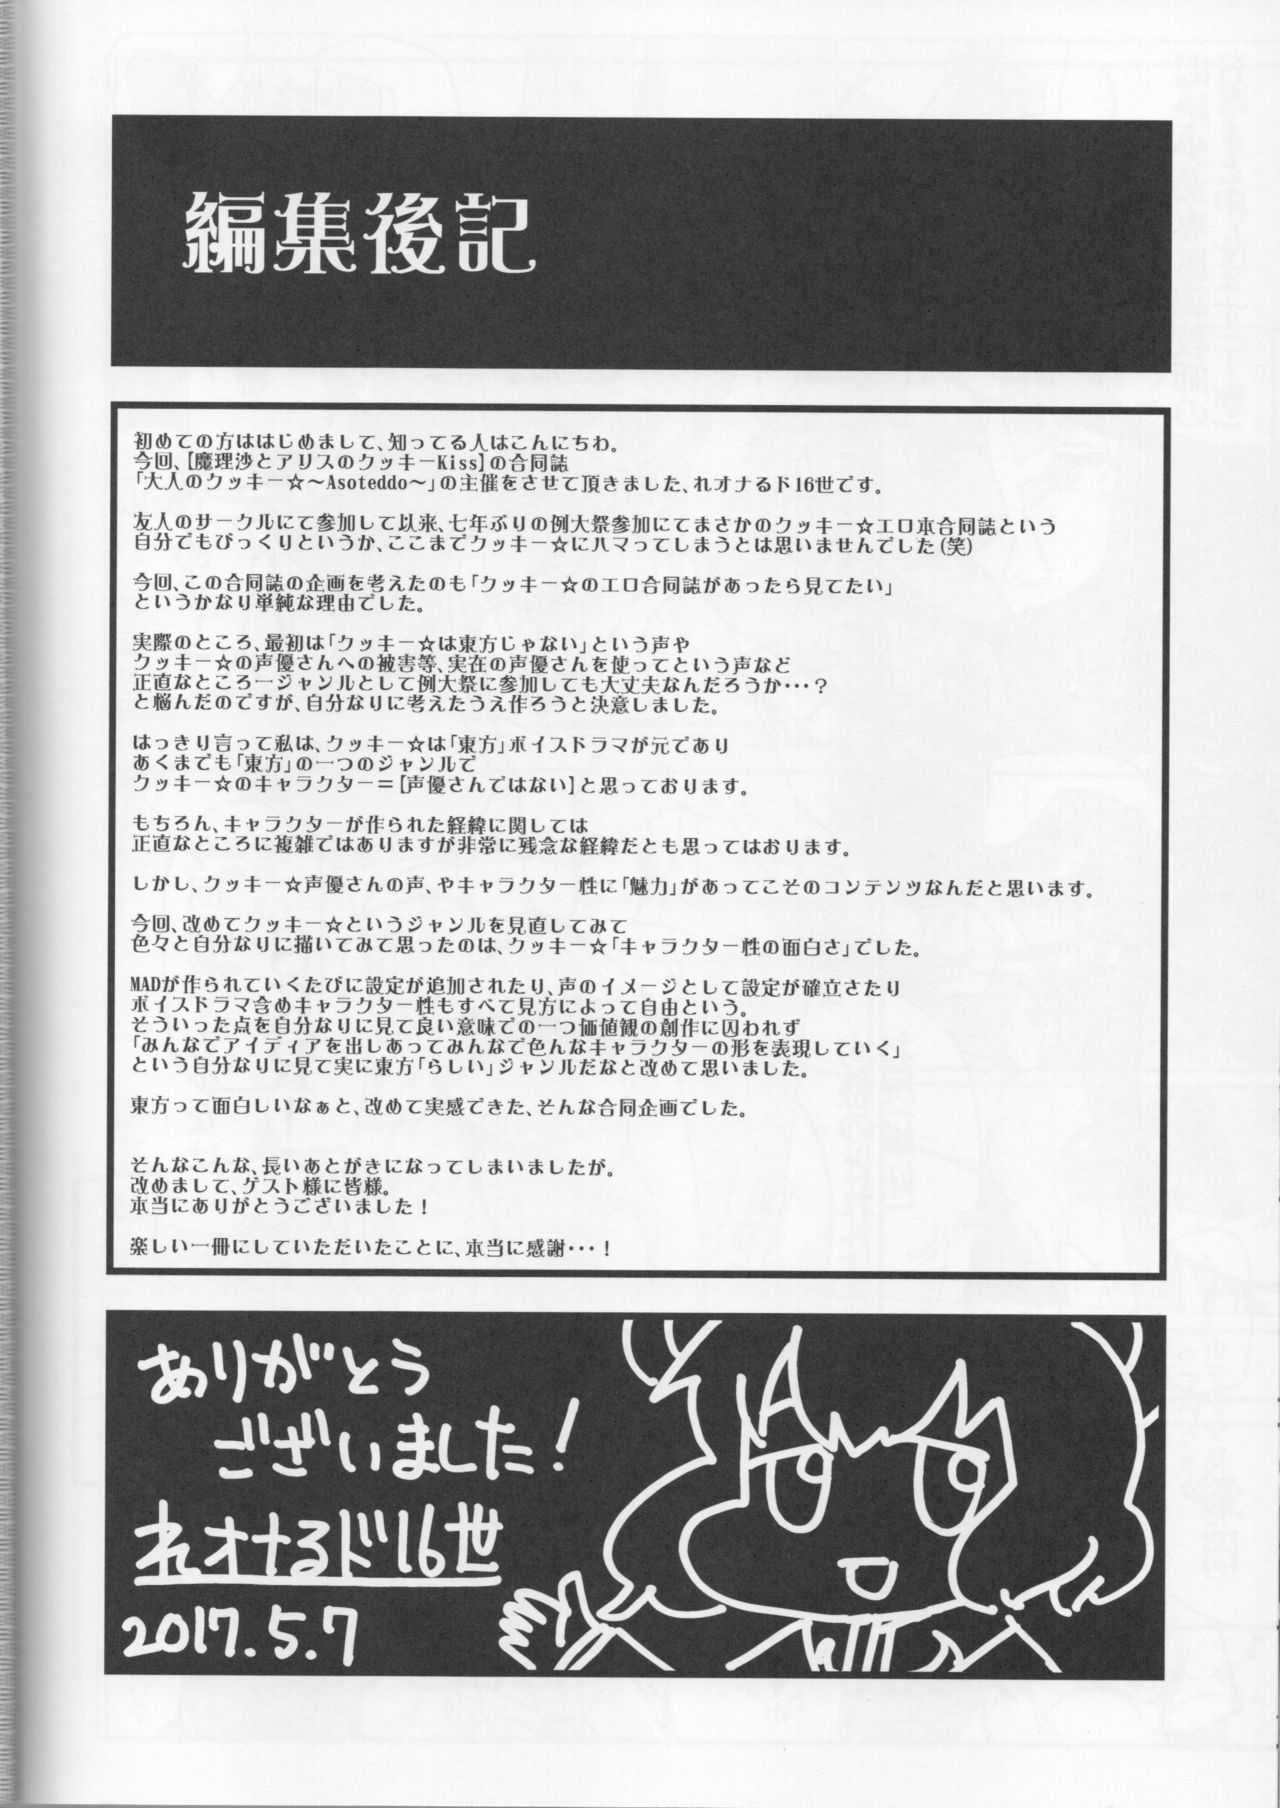 編集後記
初めての方ははじめまして、知ってる人はこんにちわ。
今回、[魔理沙とアリスのクッキーKiss]の合同誌
「大人のクッキー☆～Asoteddo～」の主催をさせて頂きました、れオナるド16世です。
友人のサークルにて参加して以来、七年ぶりの例大祭参加にてまさかのクッキー☆エロ本合同誌という
自分でもびっくりというか、ここまでクッキー☆にハマってしまうとは思いませんでした(笑)
今回、この合同誌の企画を考えたのも「クッキー☆のエロ合同誌があったら見てたい」
というかなり単純な理由でした。
実際のところ、最初は「クッキー☆は東方じゃない」という声や
クッキー☆の声優さんへの被害等、実在の声優さんを使ってという声など
正直なところ一ジャンルとして例大祭に参加しても大丈夫なんだろうか・・・?
と悩んだのですが、自分なりに考えたうえ作ろうと決意しました。
はっきり言って私は、クッキー☆は「東方」ボイスドラマが元であり
あくまでも「東方」の一つのジャンルで
クッキー☆のキャラクター＝[声優さんではない]と思っております。
もちろん、キャラクターが作られた経緯に関しては
正直なところに複雑ではありますが非常に残念な経緯だとも思ってはおります。
しかし、クッキー☆声優さんの声、やキャラクター性に「魅力」があってこそのコンテンツなんだと思います。
今回、改めてクッキー☆というジャンルを見直してみて
色々と自分なりに描いてみて思ったのは、クッキー☆「キャラクター性の面白さ」でした。
MADが作られていくたびに設定が追加されたり、声のイメージとして設定が確立さたり
ボイスドラマ含めキャラクター性もすべて見方によって自由という。
そういった点を自分なりに見て良い意味での一つ価値観の創作に囚われず
「みんなでアイディアを出しあってみんなで色んなキャラクターの形を表現していく」
という自分なりに見て実に東方「らしい」ジャンルだなと改めて思いました。
東方って面白しいなぁと、改めて実感できた、そんな合同企画でした。
そんなこんな、長いあとがきになってしまいましたが。
改めまして、ゲスト様に皆様。
本当にありがとうございました!
楽しい一冊にしていただいたことに、本当に感謝・・・!
ありがとう
ございました!
れオナるド16世
2017.5.7